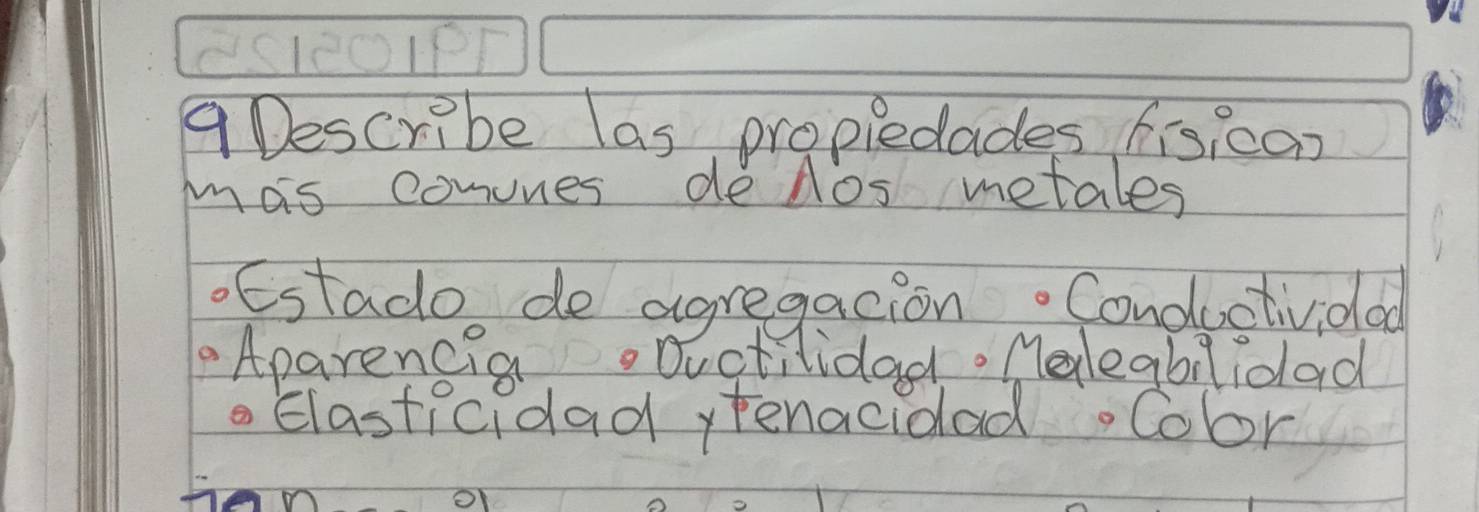 9 Describe las propiedades físicas
más comunes de los metales
• Estado de agregación • Conductividad
• Aparencia • Ductilidad • Maleabilidad
• Elasticidad y tenacidad • Color